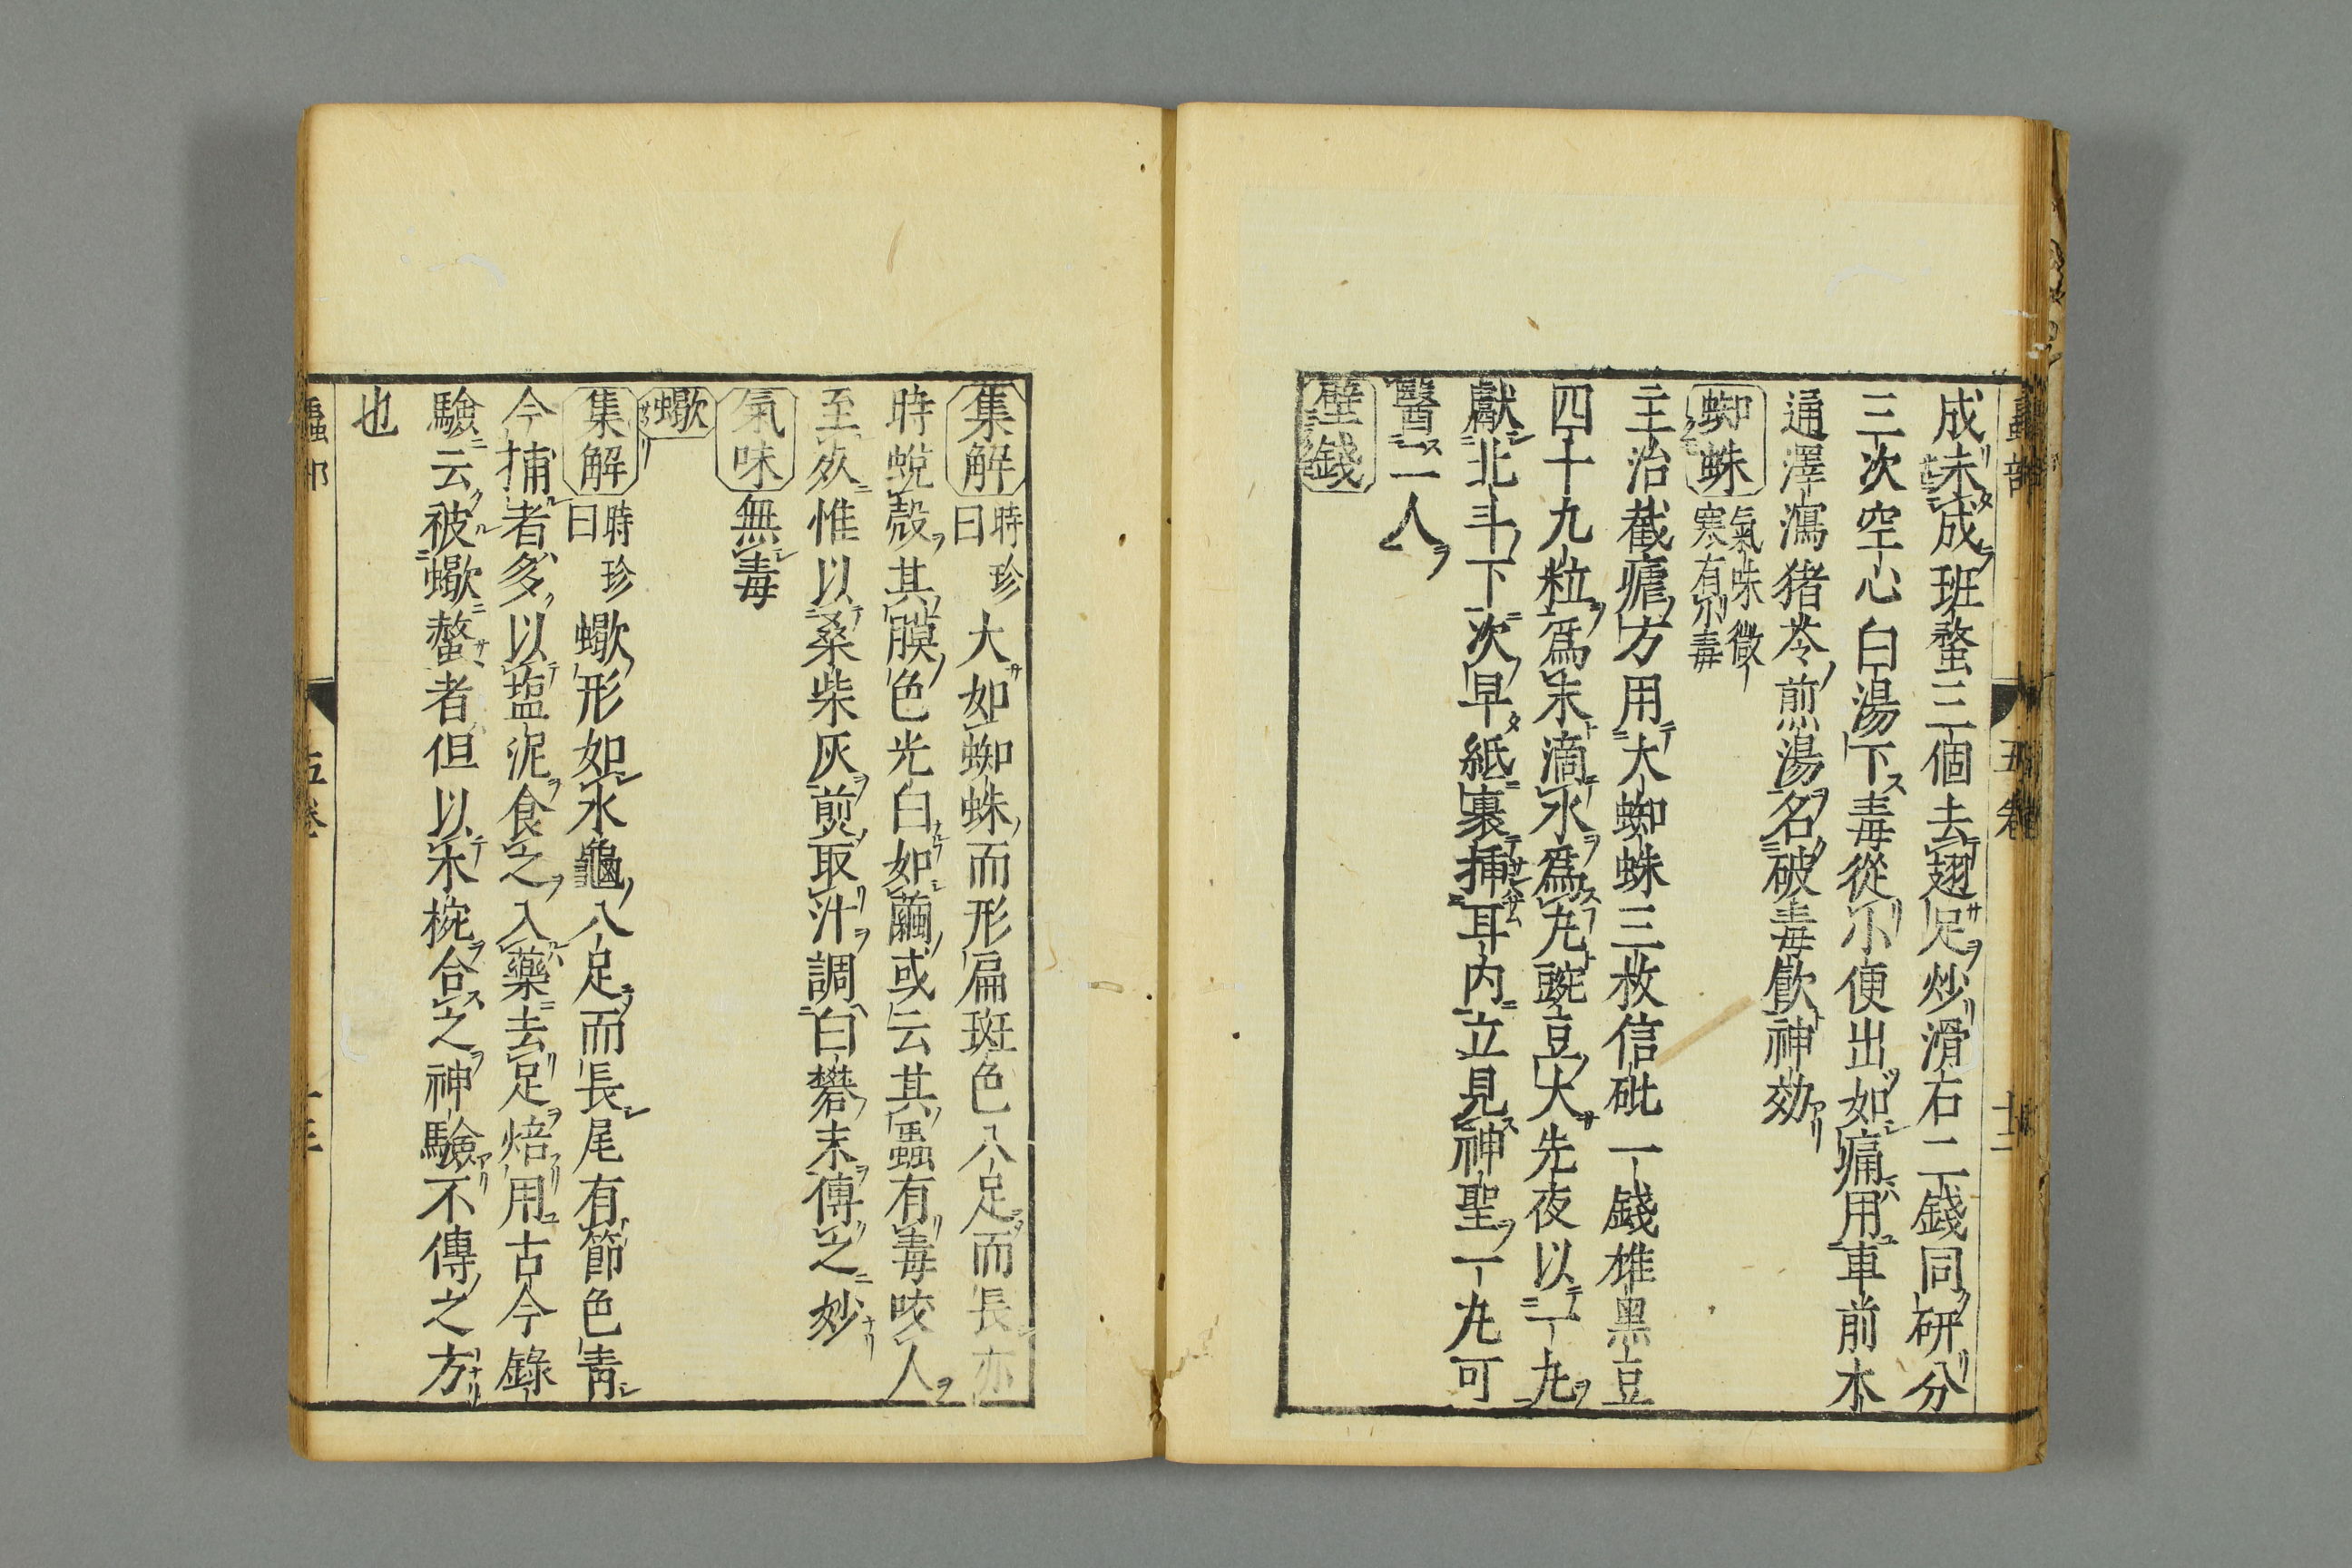 成未成班蝥三個去翅足炒滑石二錢同研分
三次空心白湯下毒從小便出如痛用車前木
通澤瀉猪苓煎湯名破毒飲神効
蜘蛛 氣味微寒有小毒
主治截瘧方用大蜘蛛三枚信砒一錢雄黒豆
四十九粒爲末滴水爲丸豌豆大先夜以一丸
獻北斗下次早紙裹挿耳内立見神聖一丸可
醫二人
壁錢
蟲部 五卷 十二
集解 時珍曰大如蜘蛛而形扁斑色八足而長亦
時蛻殼其膜色光白如繭或云其蟲有毒咬人
至死惟以桑柴灰煎取汁調白礬末傅之妙
氣味 無毒
蠍
集解 時珍曰蠍形如水龜八足而長尾有節色青
今捕者多以塩泥食之入藥去足焙用古今錄
驗云被蠍螫者但以木椀合之神驗不傳之方
也
蟲部 五卷